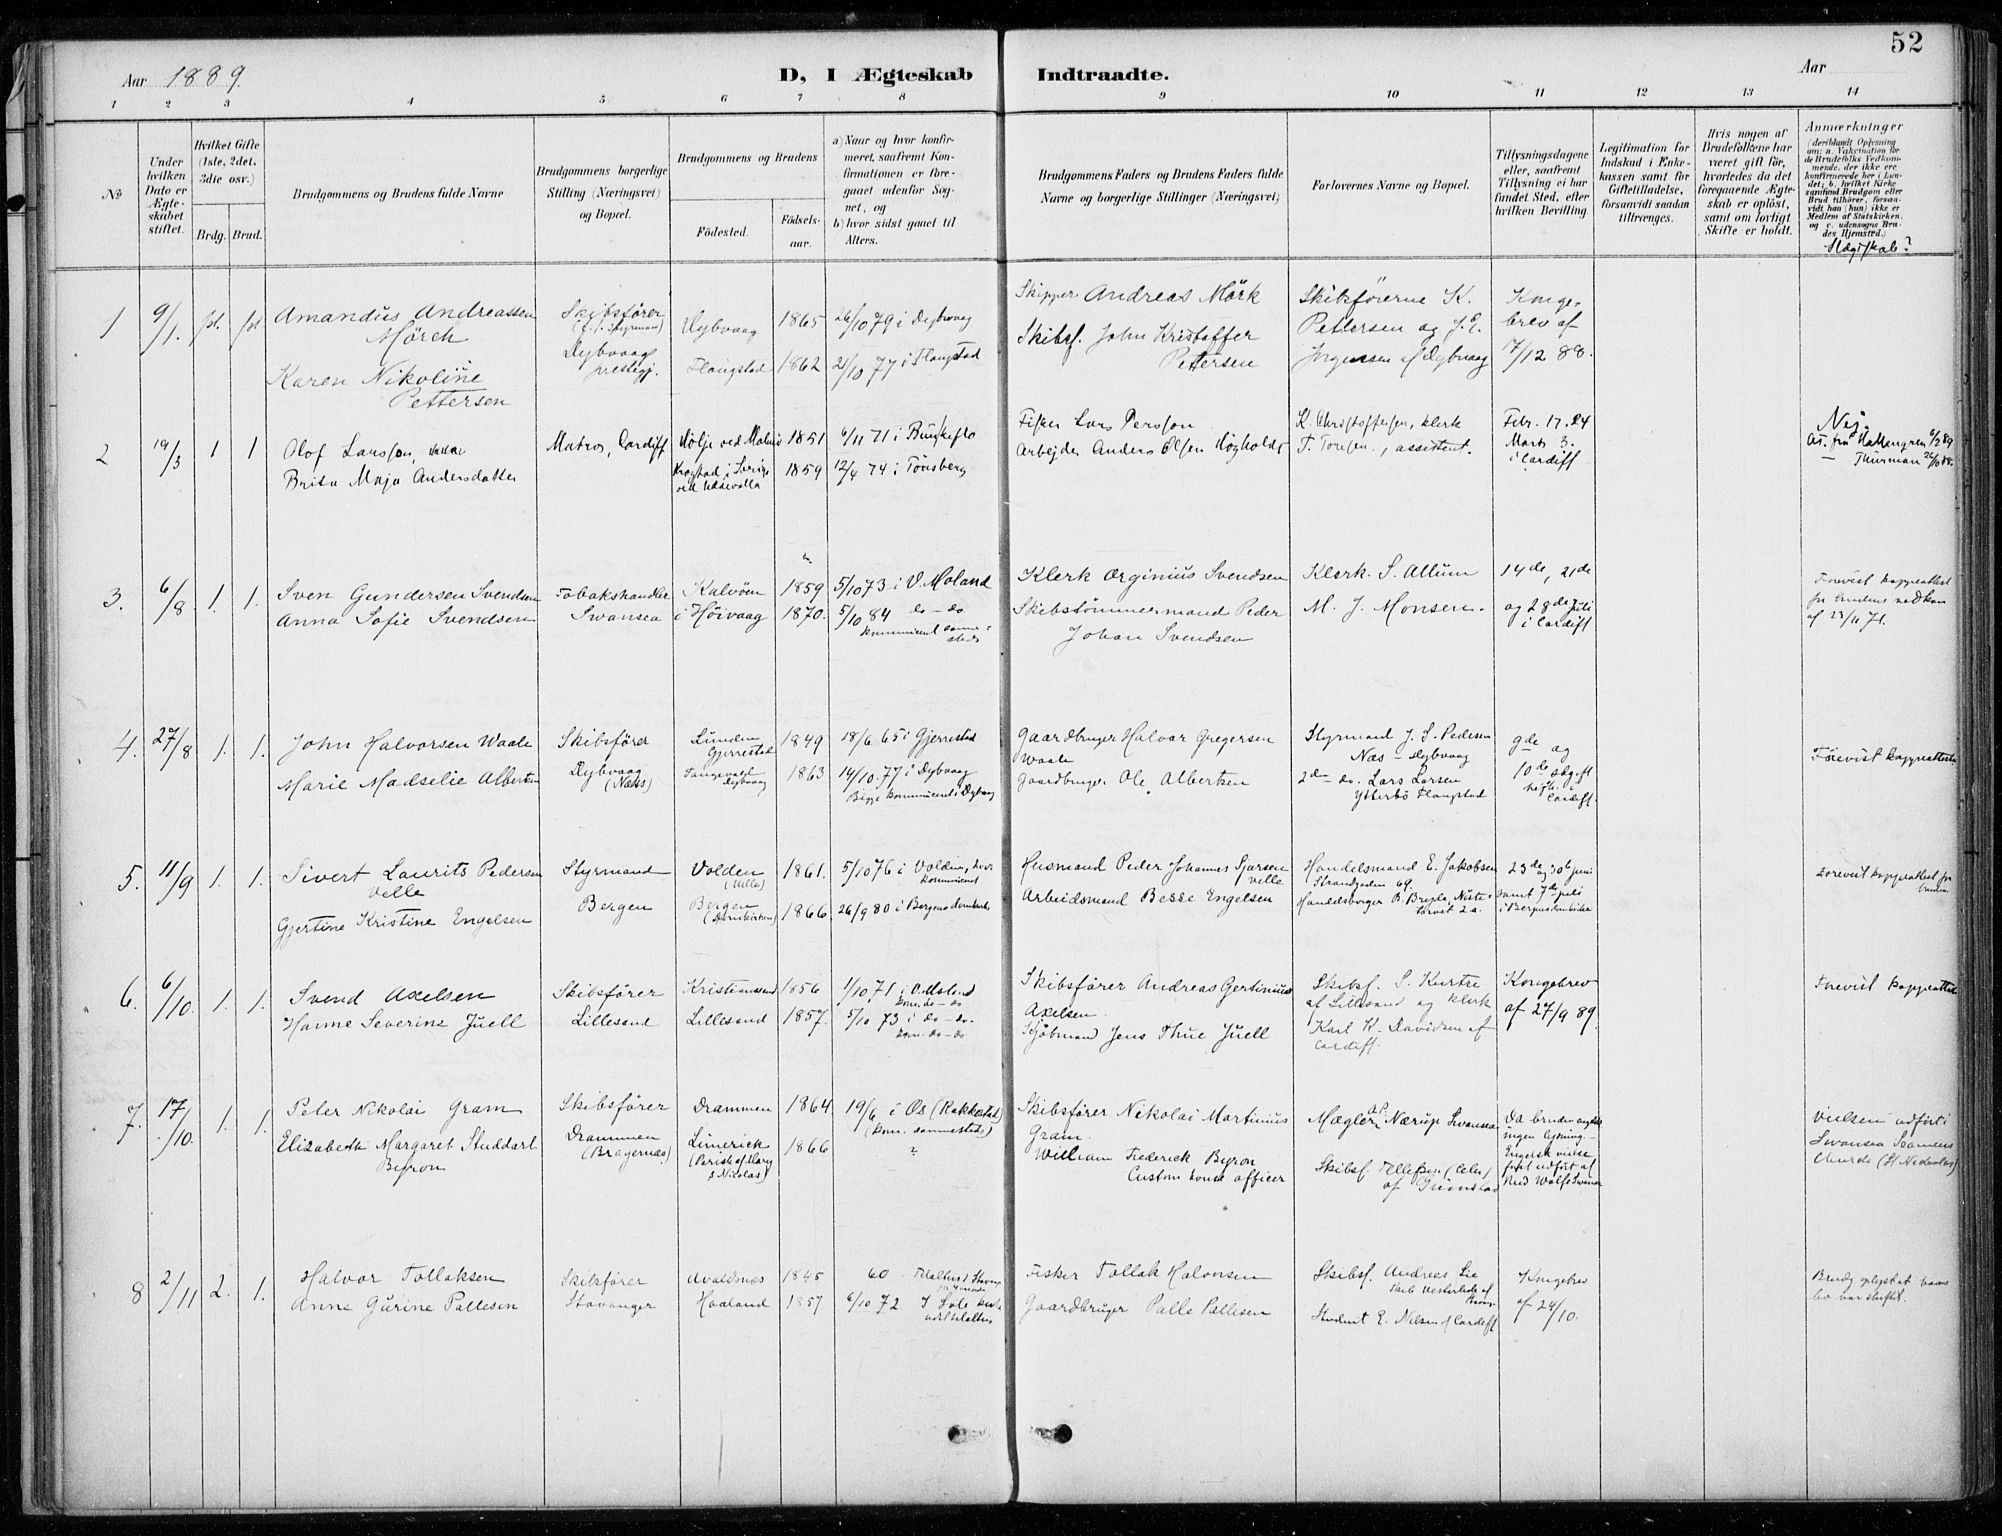 52
Aar 1889.
D, I Ægteskab Indtraadte.
Aar
1 2 3 4 5 6 7 8 9 10 11 12 13 14
№
Under hvilken Dato er Ægteskabet stiftet.
Hvilket Gifte (1ste, 2det, 3die osv.)
Brdg. Brud.
Brudgommens og Brudens fulde Navne
Brudgommens borgerlige Stilling (Næringsvei) og Bopæl.
Brudgommens og Brudens
Fødested.
Fødselsaar.
a) Naar og hvor konfirmeret, saafremt Konfirmationen er foregaaet udenfor Sognet, og
b) hvor sidst gaaet til Alters.
Brudgommens Faders og Brudens Faders fulde Navne og borgerlige Stillinger (Næringsvei)
Forlovernes Navne og Bopæl.
Tillysningsdagene eller, saafremt Tillysning ei har fundet Sted, efter hvilken Bevilling.
Legitimation for Indskud i Enkekassen samt for Giftetilladelse, forsaavidt saadan tiltrænges.
Hvis nogen af Brudefolkene har været gift før, hvorledes da det foregaaende Ægteskab er opløst, samt om lovligt Skifte er holdt.
Anmærkninger (deriblandt Oplysning om: a. Vakcination for de Brudefolks Vedkommende, der ikke ere konfirmerede her i Landet; b. hvilket Kirkesamfund Brudgom eller Brud tilhører, forsaavidt han (hun) ikke er Medlem af Statskirken, og c. udensogns Brudes Hjemsted.)
Slægtskab?
1 9/1.
Amandus Andreassen
Mörch
Karen Nikoline
Pettersen
Skibsfører
Dybvaag
prestegj.
Dybvaag 1865 26/10 79 i Dybvaag
Flangstad 1862 21/10 77 i Flangstad
Skipper Andreas Mörk
Skibsf. John Kristoffer
Pettersen
Skibsførerne K.
Pettersen og J. E.
Jörgensen af Dybvaag
Kongebrev af
7/12 88.
2 19/3 1 1
Olof Larsson,
Brita Maja Andersdatter
Matros, Cardiff
Hölje ved Malmö 1851 6/11 71 i
Krogstad i Sverige
ved Uddevalla 1859 12/4 74 i Tönsberg
Fisker Lars Persson
Arbejder Anders Olsen Högholdt
K. Christoffersen, klerk
T. Tonsen, assistent.
Febr. 17. 24
Marts 3.
i Cardiff
Nej.
Att. fra Hattangren 6/3 89
— Thurman 26/10 88.
3. 6/8 1. 1.
Sven Gundersen Svendsen
Anna Sofie Svendsen
Tobakshandler
Swansea
Kalvöen
i Höivaag
1859 5/10 73 i V. Moland
1870. 5/10 84 do – do
kommunicent sammesteds
Klerk Orginius Svendsen
Skibstömmermand Peder
Johan Svendsen
Klerk. S. Allum
M. J. Monsen.
14de, 21de
og 28de juli
i Cardiff
Forevist koppeattest
for brudens vedkom
af 23/11 71.
4. 27/8 1. 1.
John Halvorsen Waale
Marie Madselie Albertsen
Skibsförer
Dybvaag
(Næs)
Lunden
Gjerrestad 1849 18/6 65 i Gjerrestad
Dybvaag 1863 14/10. 77 i Dybvaag
Begge kommunicent i Dybvaag
Gaardbruger Halvor Gregersen
Waale
Gaardbruger Ole Albertsen
Styrmand J. S. Pedersen
Næs – Dybvaag
2den do. Lars Larsen
Ytterbö Flangstad
9de og
10de
Cardiff.
Forevist koppeattester
5. 11/9 1. 1.
Sivert Laurits Pedersen
Velle
Gjertine Kristine Engelsen
Styrmand
Bergen
Volden
(Velle) 1861. 5/10 76 i Volden, hvor
kommunicent
Bergen
(Domkirken) 1866. 26/9 80 i Bergens domkirke
Husmand Peder Johannes Sjursen
Velle
Arbeidsmand Besse Engelsen
Handelsmand E. Jakobsen
Strandgaden 69.
Handelsborger B. Bryle, Neste-
torvet 2 a.
23de og 30te juni
samt 7de juli
i Bergens domkirke
Forevist koppeattest for
6. 6/10. 1. 1.
Svend Axelsen
Hanne Severine Juell
Skibsförer
Lillesand
Kristianssand 1856 1/10 71 i V. Moland
kom. do – do
Lillesand 1857. 5/10 73 i do – do.
kom. do – do
Skibsförer Andreas Gertinius
Axelsen.
Sjöbmand Jens Thue Juell
Skibsf. S. Kurtre
af Lillesand og klerk
Karl K. Davidsen af
Cardiff.
Kongebrev
af 27/9 89.
Forevist koppeattest
7. 17/10. 1. 1.
Peter Nikolai Gram
Elizabeth Margaret Studdart
Byron
Skibsförer
Drammen
(Bragernæs)
Drammen 1864. 19/6 i Os (Rakkestad)
(kom. sammesteds)
Limerick
& Nicolas) 1866 ?
Skibsförer Nikolai Martinius
Gram.
William Frederick Byron
Custom house officer
Mægler A.P. Nærup Swansea
Skibsf. Tellefsen
af Grimstad
Da bruden
ingen lysning.
Engelsk vielse
först udfört af
Rev. Wolfe Swansea
Vielsen udfört i
Swansea Seamens
Church (St Nicholas)
8 2/11 2. 1.
Halvor Tollaksen
Anne Gurine Pallesen
Skibsförer
Stavanger
Avaldsnæs 1845 60
Haaland 1857. 6/10 72 I Sole kirke
Fisker Tollak Halvorsen
Gaardbruger Palle Pallesen
Skibsf. Andreas Lie
Skib Vesterlide af
Stavanger
Student E. Nilsen af Cardiff
Kongebrev
af 24/10.
Brudg. oplyst at hans
bo var skiftet.